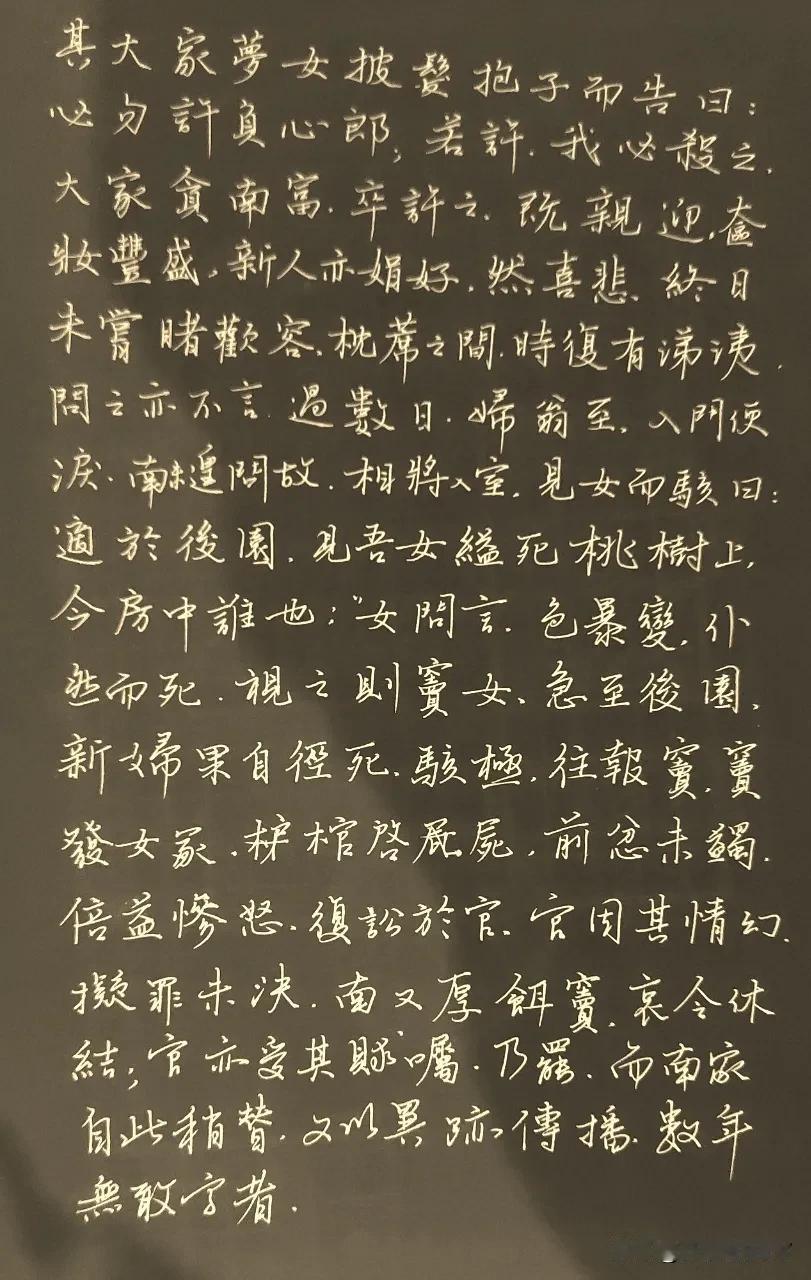 其大家夢女披髮抱子而告曰：
必勿許負心郎；若許．我必殺之．
大家貪南富．卒許之．既親迎．奩
妝豐盛．新人亦娟好．然喜悲．終日
未嘗睹歡容．枕蓆之間．時復有涕洟．
問之亦不言．過數日．婦翁至．入門便
淚．南未遑問故．相將入室．見女而駭曰：
適於後園．見吾女縊死桃樹上．
今房中誰也；”女問言．色暴變．仆
然而死．視之則竇女．急至後園．
新婦果自徑死．駭極．往報竇．竇
發女冢．棺啓屍．前忿未蠲．
倍益慘怒．復訟於官．官因其情幻．
擬罪未決．南又厚餌竇．哀令休
結；官亦受其賕囑．乃罷．而南家
自此稍替．又以異跡傳播．數年
無敢字者．